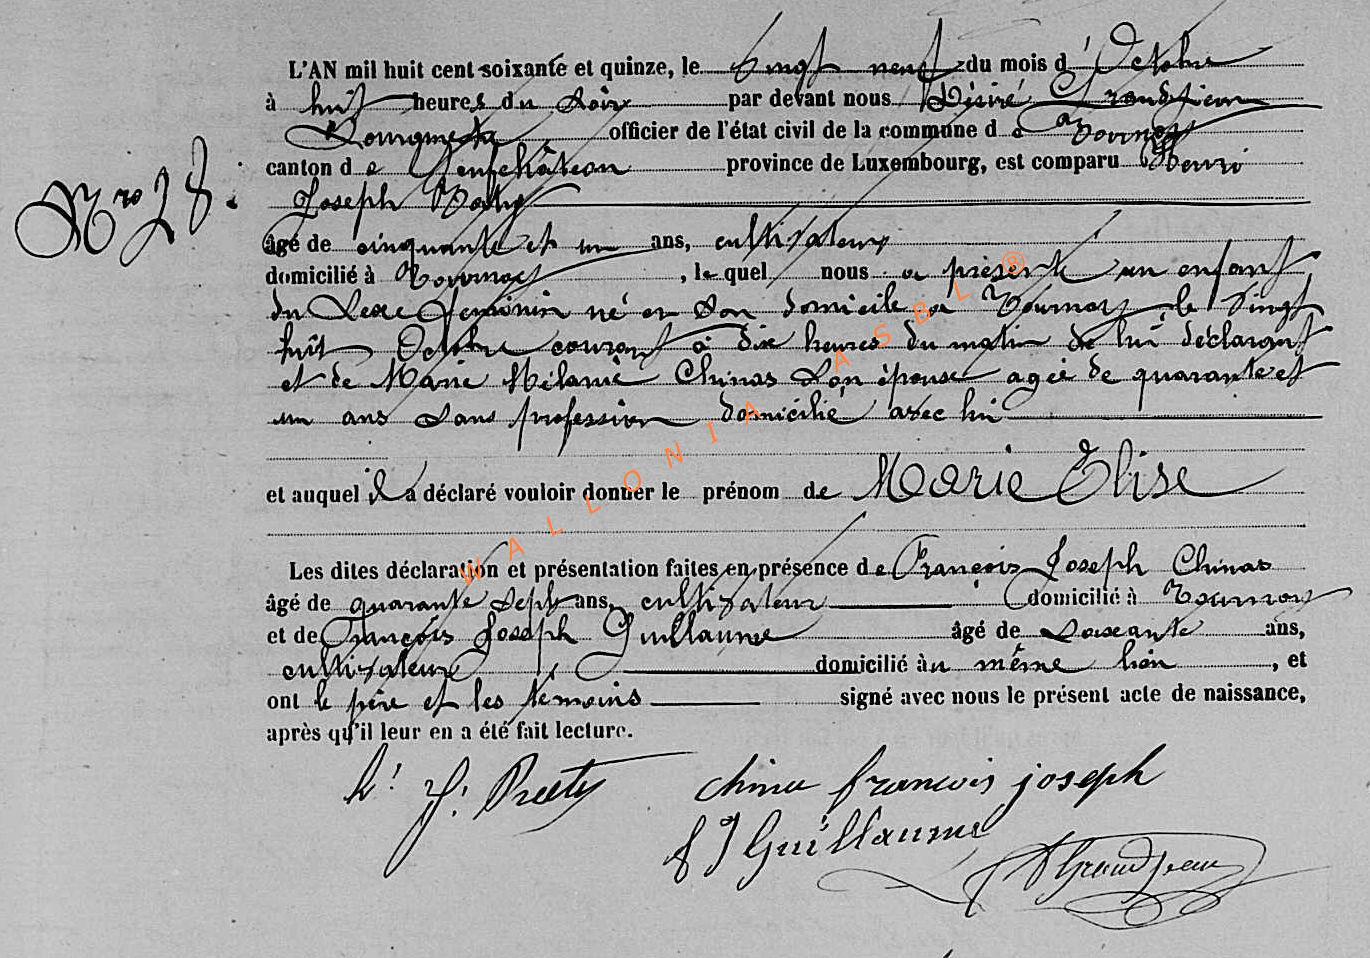 L'AN mil huit cent soixante et quinze, le Vingt neuf du mois d' Octobre
à huit heures du Soir par devant nous Désiré Grandjean
Bourgmestre officier de l'état civil de la commune d e Tournay
canton d e Neufchâteau province de Luxembourg, est comparu Henri
Nro 28.
Joseph
âgé de cinquante et un ans, cultivateur
domicilié à Tournay , le quel nous a présenté un enfant
du Sexe feminin né en Son domicile a Tournay le Vingt
huit Octobre courant à dix heures du matin de lui déclarant
et de Marie Mélanie Chinas Son épouse agée de quarante et
un ans Sans profession domicilié avec lui
et auquel il a déclaré vouloir donner le prénom de Marie Elise
Les dites déclaration et présentation faites en présence de François Joseph Chinas
âgé de quarante Sept ans, cultivateur domicilié à Tournay
et de François Joseph Guillaume âgé de Soixante ans,
cultivateur domicilié àu même lieu , et
ont le père et les témoins signé avec nous le présent acte de naissance,
après qu'il leur en a été fait lecture.
h. J. chinas francois joseph
f J Guillaume
D Grandjean
WALLONIA ASBL ®